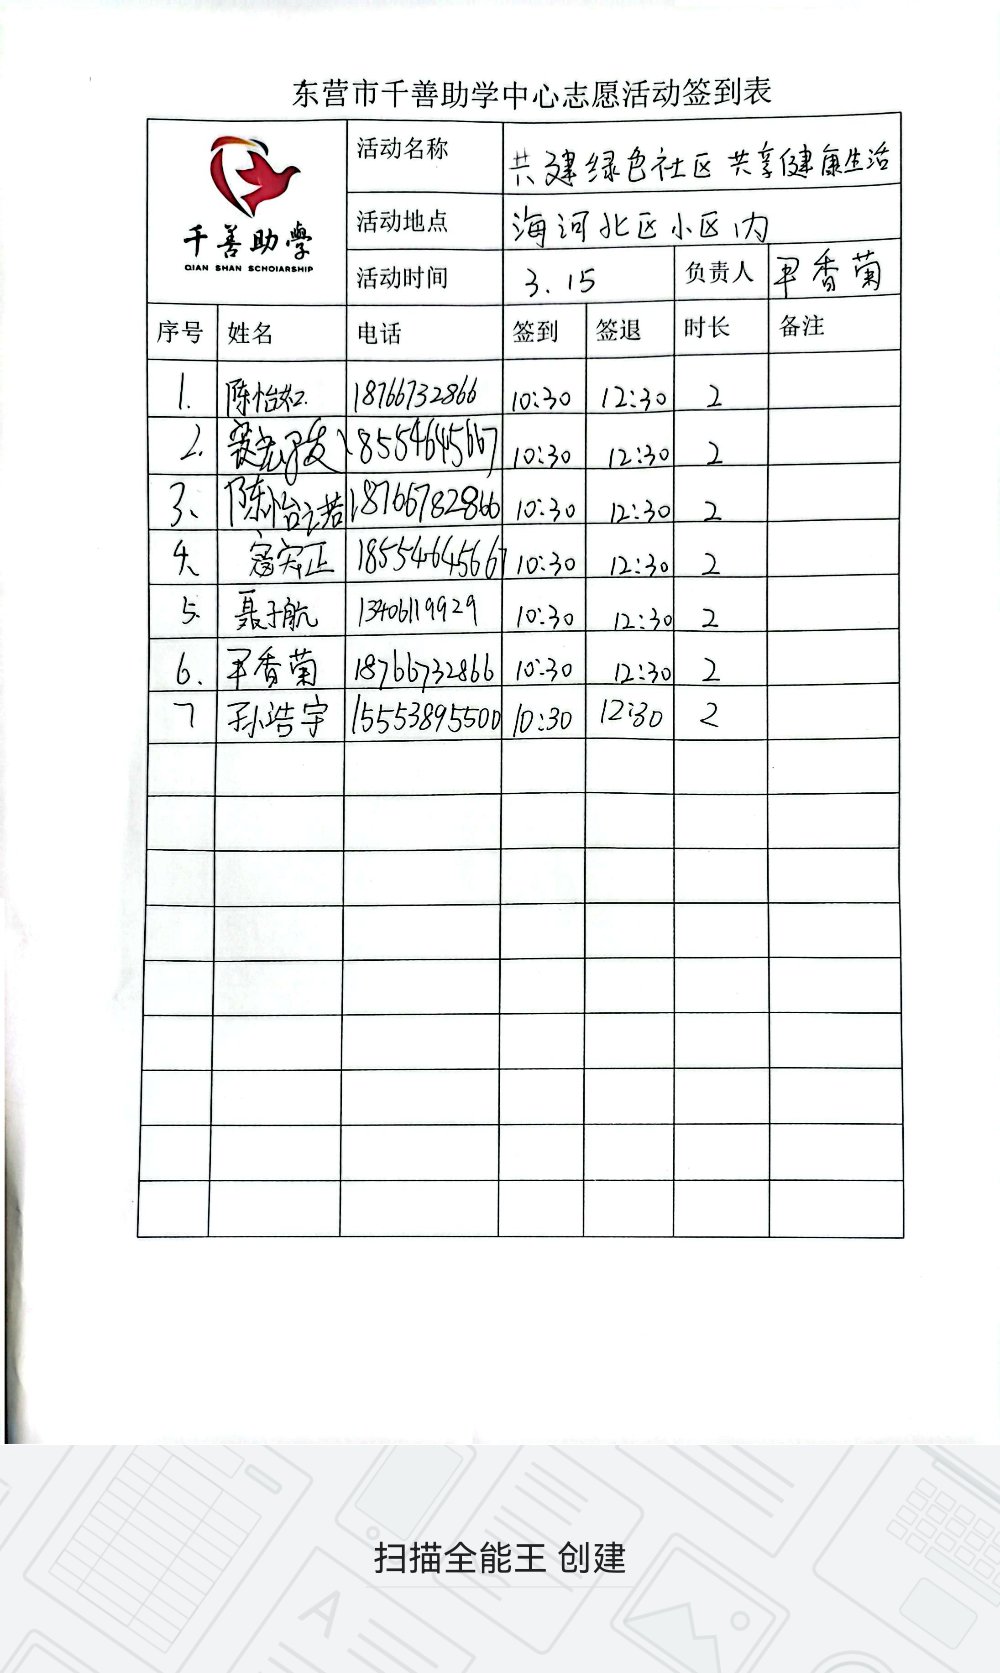 东营市千善助学中心志愿活动签到表
千善助學
QIAN SHAN SCHOIARSHIP
活动名称 共建绿色社区 共享健康生活
活动地点 海河北区小区内
活动时间 3.15 负责人 香菊
序号 姓名 电话 签到 签退 时长 备注
1. 陈怡如 18766732866 10:30 12:30 2
2. 18554645667 10:30 12:30 2
3、 陈怡若 18766782866 10:30 12:30 2
4、 正 18554645667 10:30 12:30 2
5. 聂子航 13406119929 10:30 12:30 2
6. 香菊 18766732866 10:30 12:30 2
7 孙浩宇 15553895500 10:30 12:30 2
扫描全能王 创建